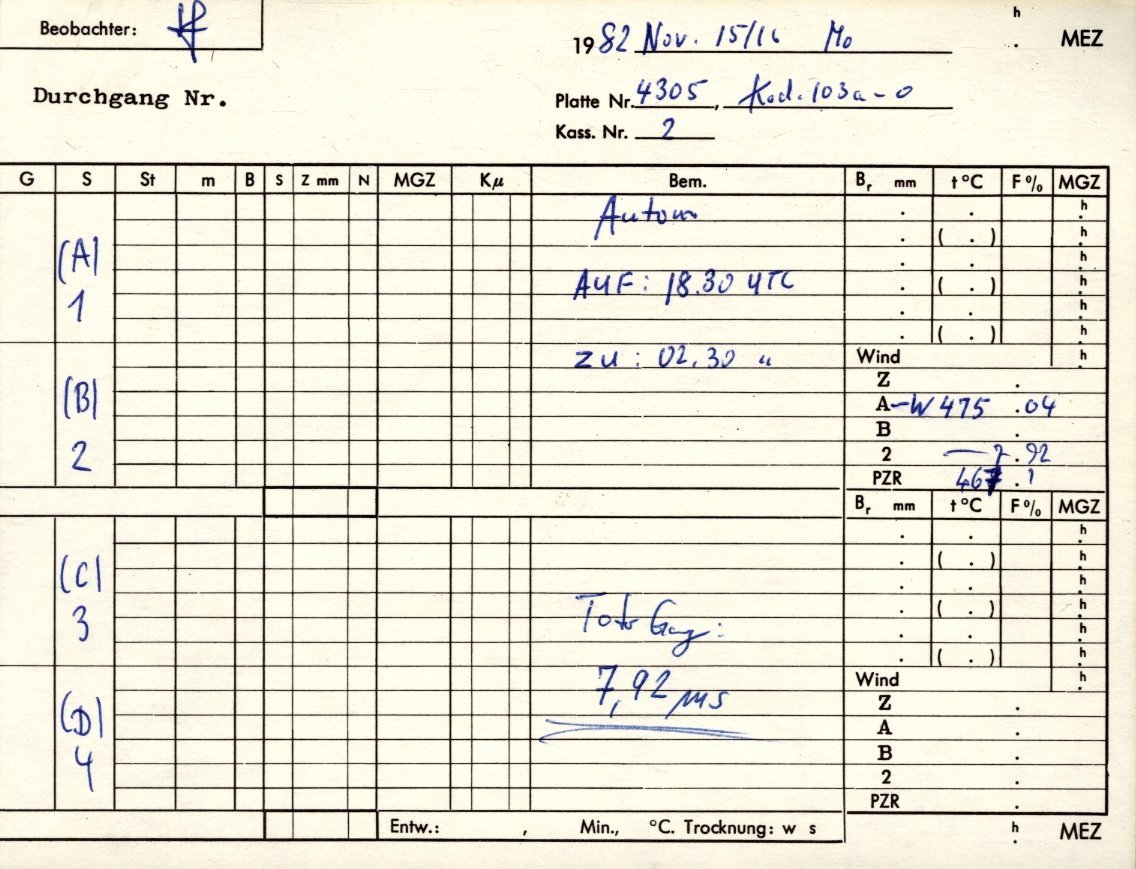 Beobachter:
1982 Nov. 15/16 Mo
h
. MEZ
Durchgang Nr.
Platte Nr. 4305, Kod. 103a-O
Kass. Nr. 2
G S St m B S Z mm N MGZ Kµ Bem. Br mm t °C F % MGZ
Autom
. . h
. ( . ) h
(A) . . h
1 AUF: 18.30 UTC . ( . ) h
. . h
. ( . ) h
zu: 02.30 " Wind h
Z .
(B) A -W 475 .04
B .
2 2 — 7.92
PZR 467.1
Br mm t °C F % MGZ
. . h
. ( . ) h
(C) . . h
3 Toter Gang: . ( . ) h
. . h
. ( . ) h
7,92 µs Wind h
Z .
(D) A .
B .
4 2 .
PZR .
Entw.: , Min., °C. Trocknung: w s
h
. MEZ